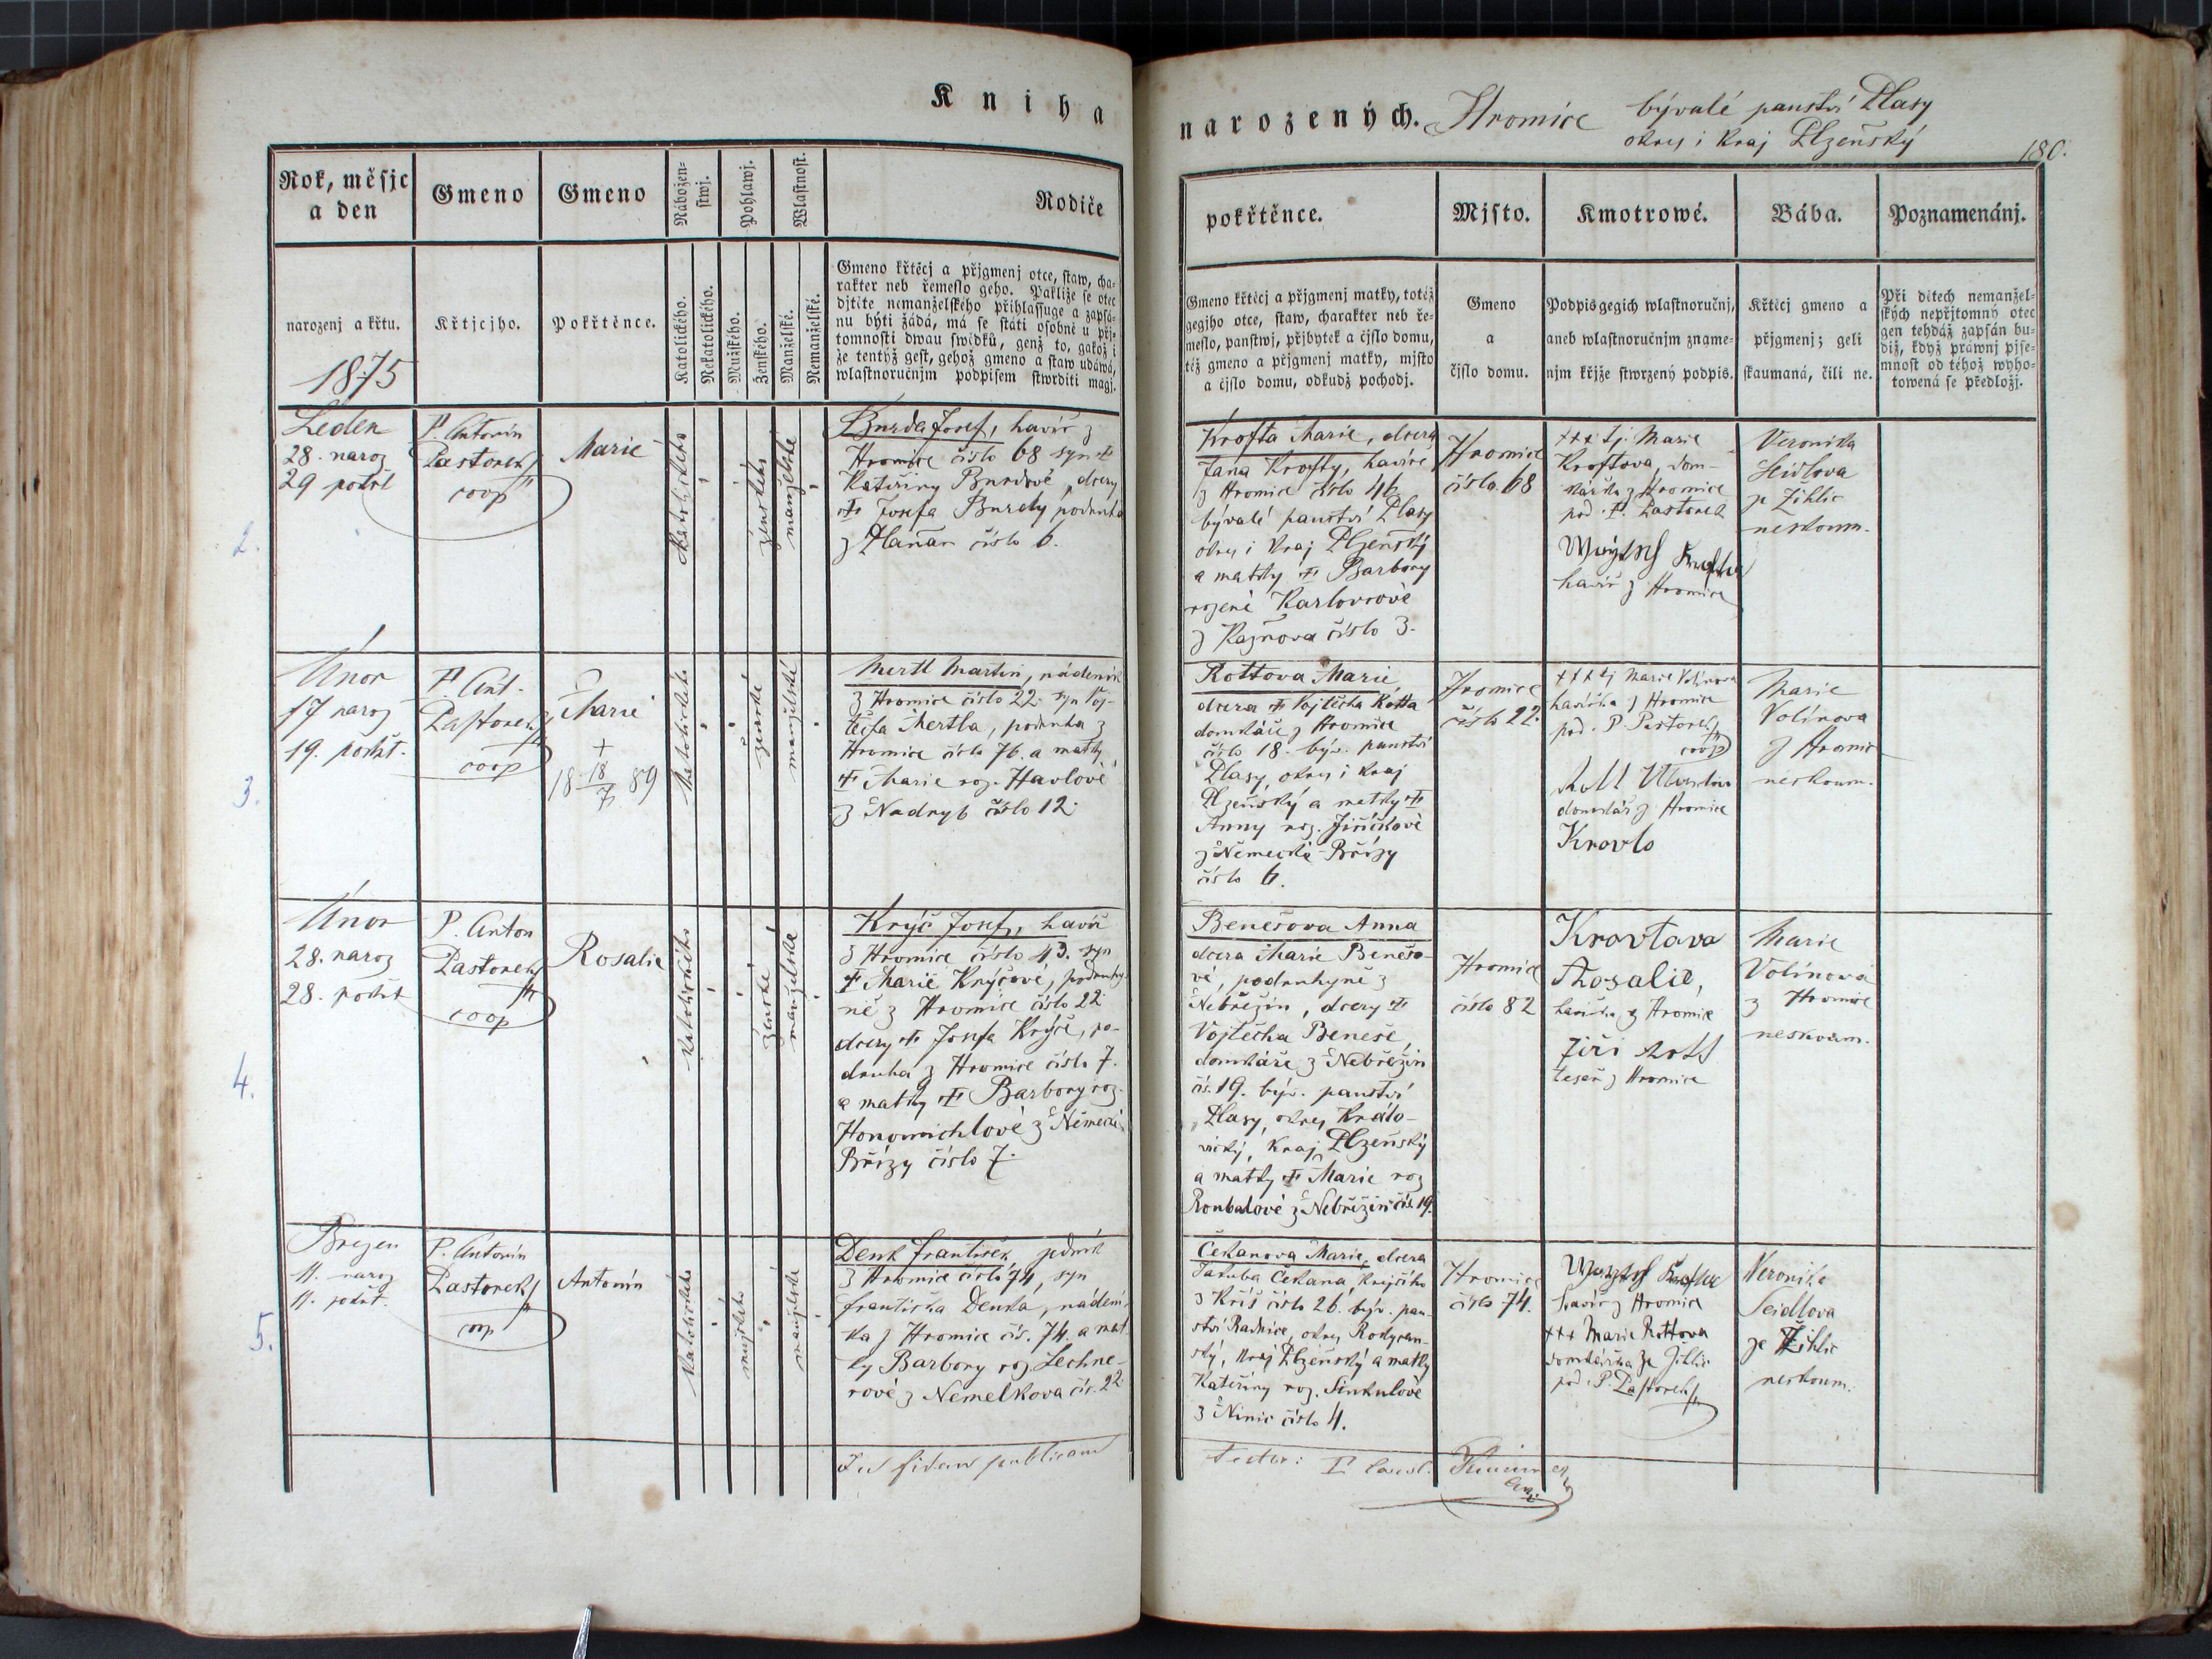 Kniha
narozených. Hromice bývalé panství Plasy
okres i kraj Plzeňský
180.
Rok, měsjc
a den
Gmeno
Gmeno
Nábožen-
stwj.
Pohlawj.
Wlastnost.
Rodiče
narozenj a křtu.
1875
Křtjcjho.
Pokřtěnce.
Katolického.
Nekatolického.
Mužského.
Ženského.
Manželské.
Nemanželské.
Gmeno křtěcj a přjgmenj otce, staw, cha-
rakter neb řemeslo geho. Pakliže se otec
djtěte nemanželského přihlassuge a zapsá-
nu býti žádá, má se státi osobně u při-
tomnosti dwau swědků, genž to, gakož i
že tentýž gest, gehož gmeno a staw udáwá,
wlastnoručnjm podpisem stwrditi magj.
pokřtěnce.
Mjsto.
Kmotrowé.
Bába.
Poznamenánj.
Gmeno křtěcj a přjgmenj matky, totéž
gegjho otce, staw, charakter neb ře-
meslo, panstwj, přjbytek a čjslo domu,
též gmeno a přjgmenj matky, mjsto
a čjslo domu, odkudž pochodj.
Gmeno
a
čjslo domu.
Podpis gegich wlastnoručnj,
aneb wlastnoručnjm zname-
njm křjže stwrzený podpis.
Křtěcj gmeno a
přjgmenj; geli
skaumaná, čili ne.
Při dětech nemanžel-
ských nepřjtomný otec
gen tehdáž zapsán bu-
diž, když práwnj pjse-
mnost od téhož wyho-
towená se předložj.
2.
Leden
28. naroz
29 pokřt
P. Antonín
Pastorek
coop
Marie
katolického
ženského
manželské
Burda Josef, havíř z
Hromice číslo 68 syn †
Kateřiny Burdové, dcery
† Josefa Burdy, podruha
z Plaňan číslo 6.
Krofta Marie, dcera
Jana Krofty, havíře
z Hromice číslo 46
bývalé panství Plasy
okres i kraj Plzeňský
a matky † Barbory
rozené Karlovcové
z Kaznova číslo 3.
Hromice
číslo 68
+++ tj. Marie
Kroftova, dom-
kářka z Hromice
pod. P. Pastorek
havíř z Hromice
Veronika
Seidlova
ze Žihlic
neskoum.
3.
Únor
17 naroz
19. pokřt.
P. Ant.
Pastorek
coop
Marie
+
18 18/7 89
katolického
ženské
manželské
Mertl Martin, nádeník
z Hromice číslo 22. syn Voj-
těcha Mertla, podruha z
Hromice číslo 76. a matky
† Marie roz. Havlové
z Nadryb číslo 12.
Rottova Marie
dcera † Vojtěcha Rotta
domkáře z Hromice
číslo 18. býv. panství
Plasy, okres i kraj
Plzeňský a matky †
Anny roz. Jiřičkové
z Německé Břízy
číslo 6.
Hromice
číslo 22.
+++ tj Marie Volínova
havířka z Hromice
pod. P Pastorek
coop
domkář z Hromice
Marie
Volínova
z Hromice
neskoum.
4.
Únor
28. naroz
28. pokřt
P. Anton
Pastorek
coop
Rosalie
katolického
ženské
manželské
Kryč Josef, havíř
z Hromice číslo 43. syn
† Marie Kryčové, podruhy-
ně z Hromice číslo 22
dcery † Josefa Kryče, po-
druha z Hromice číslo 7.
a matky † Barbory roz.
Honomichlové z Německé
Břízy číslo 7.
Benešova Anna
dcera Marie Benešo-
vé, podruhyně z
Nebřežin, dcery †
Vojtěcha Beneše,
domkáře z Nebřežin
čís. 19. býv. panství
Plasy, okres Kralo-
vický, kraj Plzeňský
a matky † Marie roz
Roubalové z Nebřežin čís. 19.
Hromice
číslo 82
Krovtava
Rosalie,
havířka z Hromice
Jiří Rott
tesař z Hromice
Marie
Volínová
z Hromice
neskoum.
5.
Brezen
11. naroz
11. pokřt.
P. Antonín
Pastorek
coop
Antonín
katolického
mužského
manželské
Denk František,
z Hromice číslo 74, syn
Františka Denka, nádení-
ka z Hromice čís. 74. a mat
ky Barbory roz Lechne-
rové z Nemelkova čís. 22
Čekanova Marie, dcera
Jakuba Čekana, krejčího
z Kříš číslo 26. býv. pan-
ství Radnice, okres Rokycan-
ský, kraj Plzeňský a matky
Kateřiny roz. Sinkulové
z Ninic číslo 4.
Hromice
číslo 74.
havíř z Hromice
+++ Marie Rottova
domkářka ze Žihlic
pod. P. Pastorek
Veronika
Seidlova
ze Žihlic
neskoum.
In fidem publicam